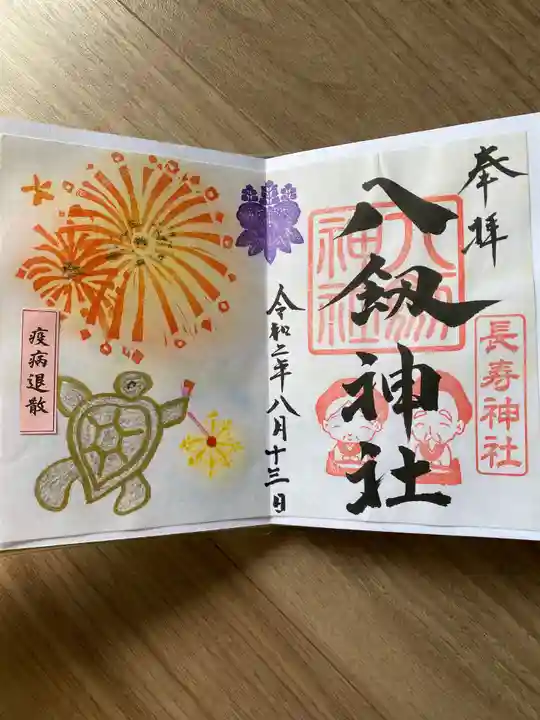 奉拝
八剱神社
八剱神社
長寿神社
令和二年八月十三日
疫病退散